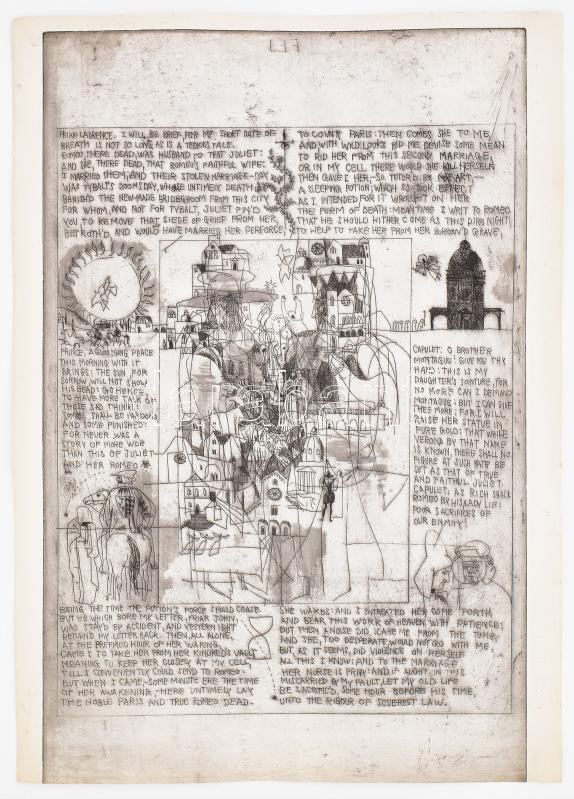 FRIAR LAURENCE. I WILL BE BRIEF FOR MY SHORT DATE OF
BREATH IS NOT SO LONG AS IS A TEDIOUS TALE.
ROMEO, THERE DEAD, WAS HUSBAND TO THAT JULIET:
AND SHE, THERE DEAD, THAT ROMEO'S FAITHFUL WIFE:
I MARRIED THEM, AND THEIR STOLEN MARRIAGE-DAY
WAS TYBALT'S DOOMSDAY, WHOSE UNTIMELY DEATH
BANISH'D THE NEW-MADE BRIDEGROOM FROM THIS CITY
FOR WHOM, AND NOT FOR TYBALT, JULIET PIN'D
YOU, TO REMOVE THAT SIEGE OF GRIEF FROM HER,
BETROTH'D, AND WOULD HAVE MARRIED HER PERFORCE,
TO COUNT PARIS: THEN COMES SHE TO ME,
AND, WITH WILD LOOKS BID ME DEVISE SOME MEAN
TO RID HER FROM THIS SECOND MARRIAGE,
OR IN MY CELL THERE WOULD SHE KILL HERSELF
THEN GAVE I HER,-SO TUTOR'D BY MY ART,-
A SLEEPING POTION; WHICH SO TOOK EFFECT
AS I INTENDED, FOR IT WROUGHT ON HER
THE FORM OF DEATH: MEANTIME I WRIT TO ROMEO
THAT HE SHOULD HITHER COME AS THIS DIRE NIGHT,
TO HELP TO TAKE HER FROM HER BORROW'D GRAVE,
PRINCE, A GLOOMING PEACE
THIS MORNING WITH IT
BRINGS: THE SUN, FOR
SORROW, WILL NOT SHOW
HIS HEAD: GO HENCE
TO HAVE MORE TALK OF
THESE SAD THINGS:
SOME SHALL BE PARDON'D,
AND SOME PUNISHED:
FOR NEVER WAS A
STORY OF MORE WOE
THAN THIS OF JULIET
AND HER ROMEO
CAPULET: O BROTHER
MONTAGUE! GIVE ME THY
HAND: THIS IS MY
DAUGHTER'S JOINTURE, FOR
NO MORE CAN I DEMAND
MONTAGUE: BUT I CAN GIVE
THEE MORE; FOR I WILL
RAISE HER STATUE IN
PURE GOLD: THAT WHILE
VERONA BY THAT NAME
IS KNOWN, THERE SHALL NO
FIGURE AT SUCH RATE BE
SET AS THAT OF TRUE
AND FAITHFUL JULIET.
CAPULET: AS RICH SHALL
ROMEO BY HIS LADY LIE:
POOR SACRIFICES OF
OUR ENMITY!
BEING THE TIME THE POTION'S FORCE SHOULD CEASE.
BUT HE WHICH BORE MY LETTER, FRIAR JOHN,
WAS STAY'D BY ACCIDENT, AND YESTERNIGHT
RETURN'D MY LETTER BACK. THEN, ALL ALONE,
AT THE PREFIXED HOUR OF HER WAKING
CAME I TO TAKE HER FROM HER KINDRED'S VAULT
MEANING TO KEEP HER CLOSELY AT MY CELL
TILL I CONVENIENTLY COULD SEND TO ROMEO:
BUT WHEN I CAME,-SOME MINUTE ERE THE TIME
OF HER AWAKENING,-HERE UNTIMELY LAY
THE NOBLE PARIS AND TRUE ROMEO DEAD.
SHE WAKES: AND I ENTREATED HER COME FORTH
AND BEAR THIS WORK OF HEAVEN WITH PATIENCE:
BUT THEN A NOISE DID SCARE ME FROM THE TOMB,
AND SHE, TOO DESPERATE, WOULD NOT GO WITH ME,
BUT AS IT SEEMS, DID VIOLENCE ON HERSELF
ALL THIS I KNOW: AND TO THE MARRIAGE
HER NURSE IS PRIVY: AND IF AUGHT IN THIS
MISCARRIED BY MY FAULT, LET MY OLD LIFE
BE SACRIFIC'D, SOME HOUR BEFORE HIS TIME,
UNTO THE RIGOUR OF SEVEREST LAW.